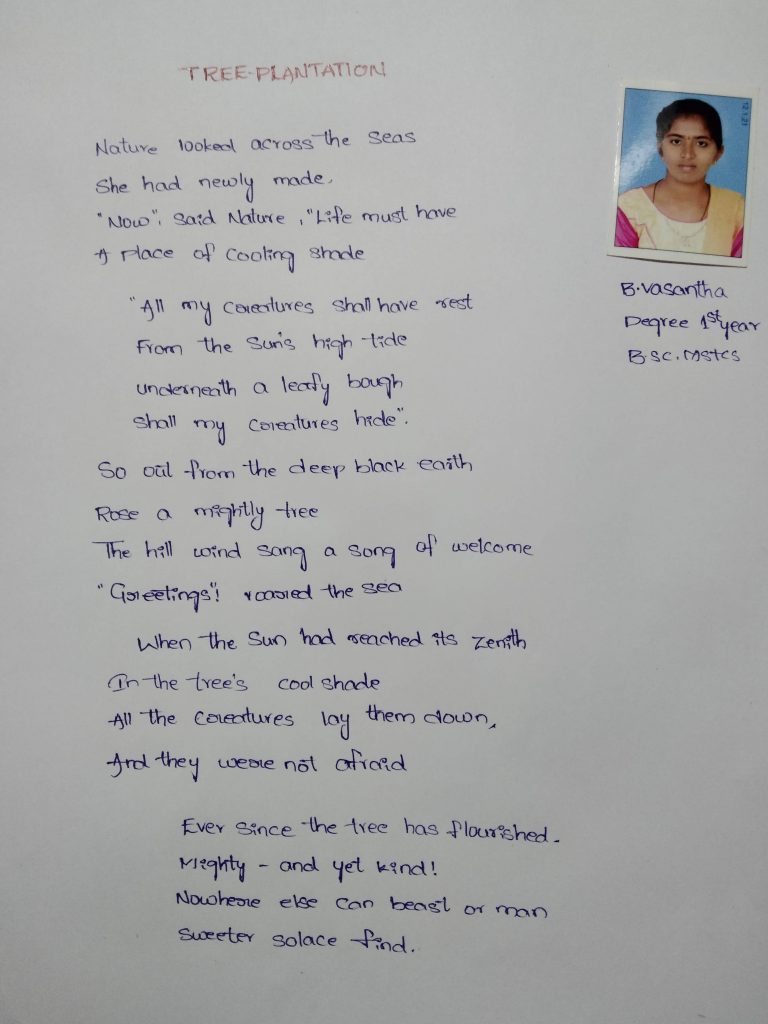 TREE-PLANTATION
Nature looked across the seas
She had newly made.
"Now", said Nature, "Life must have
A place of cooling shade
"All my creatures shall have rest
From the sun's high tide
underneath a leafy bough
Shall my creatures hide".
So out from the deep black earth
Rose a mightly tree
The hill wind sang a song of welcome
"Greetings"! roared the sea
When the Sun had reached its zenith
In the tree's cool shade
All the creatures lay them down,
And they were not afraid
Ever since the tree has flourished.
Mighty - and yet kind!
Nowhere else can beast or man
sweeter solace find.
12.1.21
B.Vasantha
Degree 1st year
B.sc.Mstcs